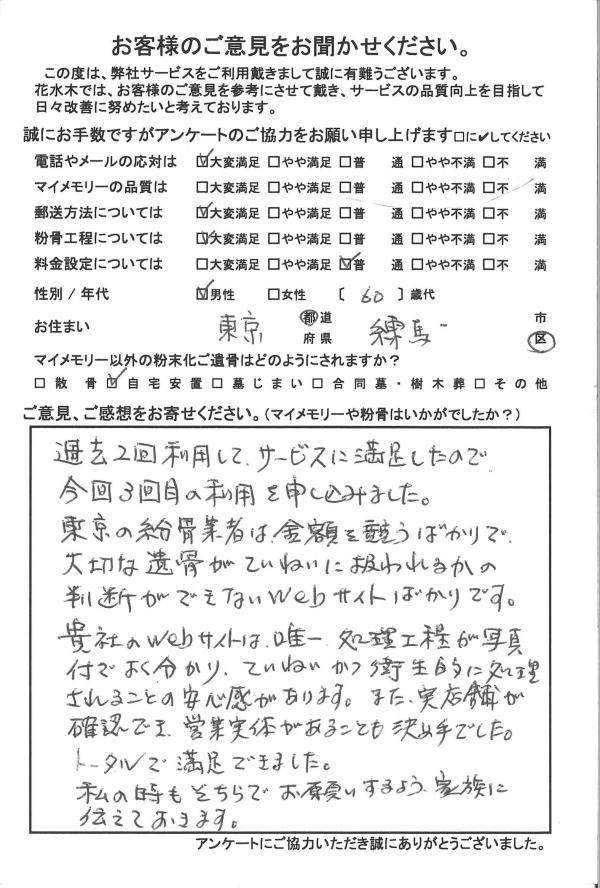 お客様のご意見をお聞かせください。
この度は、弊社サービスをご利用戴きまして誠に有難うございます。
花水木では、お客様のご意見を参考にさせて戴き、サービスの品質向上を目指して
日々改善に努めたいと考えております。
誠にお手数ですがアンケートのご協力をお願い申し上げます□に✔してください
電話やメールの応対は ☑大変満足 □やや満足 □普 通 □やや不満 □不 満
マイメモリーの品質は ☑大変満足 □やや満足 □普 通 □やや不満 □不 満
郵送方法については ☑大変満足 □やや満足 □普 通 □やや不満 □不 満
粉骨工程については ☑大変満足 □やや満足 □普 通 □やや不満 □不 満
料金設定については □大変満足 □やや満足 ☑普 通 □やや不満 □不 満
性別 / 年代 ☑男性 □女性 〔 60 〕歳代
お住まい 東京 都道府県 練馬 市区
マイメモリー以外の粉末化ご遺骨はどのようにされますか？
□散 骨 ☑自宅安置 □墓じまい □合同墓・樹木葬 □その他
ご意見、ご感想をお寄せください。(マイメモリーや粉骨はいかがでしたか？)
過去2回利用して、サービスに満足したので
今回3回目の利用を申し込みました。
東京の粉骨業者は、金額を競うばかりで、
大切な遺骨がていねいに扱われるかの
判断ができないWebサイトばかりです。
貴社のWebサイトは、唯一、処理工程が写真
付でよく分かり、ていねいかつ衛生的に処理
されることの安心感があります。また、実店舗が
確認でき、営業実体があることも決め手でした。
トータルで満足できました。
私の時もそちらでお願いするよう、家族に
伝えておきます。
アンケートにご協力いただき誠にありがとうございました。